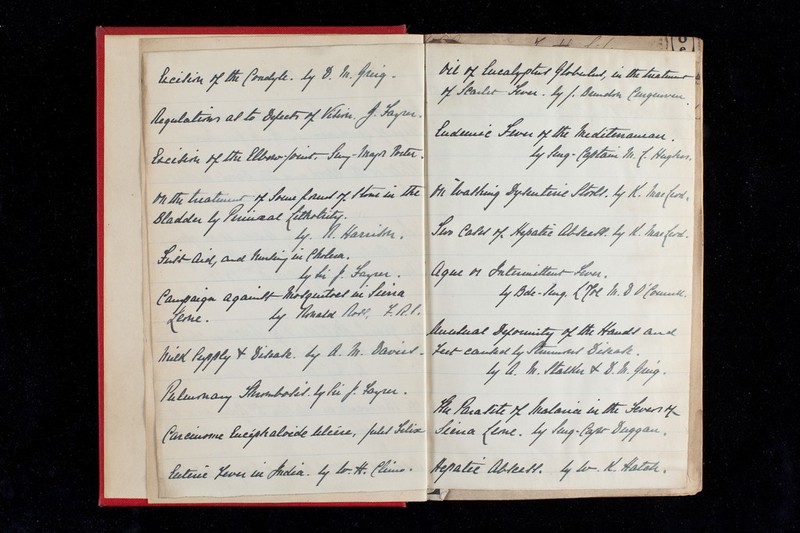 Excision of the Condyle. by D. M. Greig.
Regulations as to Defects of Vision. J. Fayrer.
Excision of the Elbow-joint. Surg-Major Porter.
On the treatment of Some forms of Stone in the
Bladder by Perineal Lithotrity.
by R. Harrison.
First Aid, and Nursing in Cholera.
by Sir J. Fayrer.
Campaign against Mosquitoes in Sierra
Leone. by Ronald Ross, F.R.S.
Milk Supply & Disease. by A. M. Davies.
Pulmonary Thrombosis. by Sir J. Fayrer.
Carcinome Encéphaloide Jules Felix
Enteric Fever in India. by W. H. Climo.
Oil of Eucalyptus Globulus, in the treatment
of Scarlet Fever. by J. Brendon Curgenven.
Endemic Fever of the Mediterranean.
by Surg-Captain M. L. Hughes.
On Washing Dysenteric Stools. by K. Macleod.
Two Cases of Hepatic Abscess. by K. Macleod.
Ague or Intermittent Fever.
by Bde-Surg. Lt Col M. D. O'Connell.
Unusual Deformity of the Hands and
Feet caused by Disease.
by A. M. Stalker & D. M. Greig.
The Parasite of Malaria in the Fevers of
Sierra Leone. by Surg-Capt Duggan.
Hepatic Abscess. by W. K. Hatch.